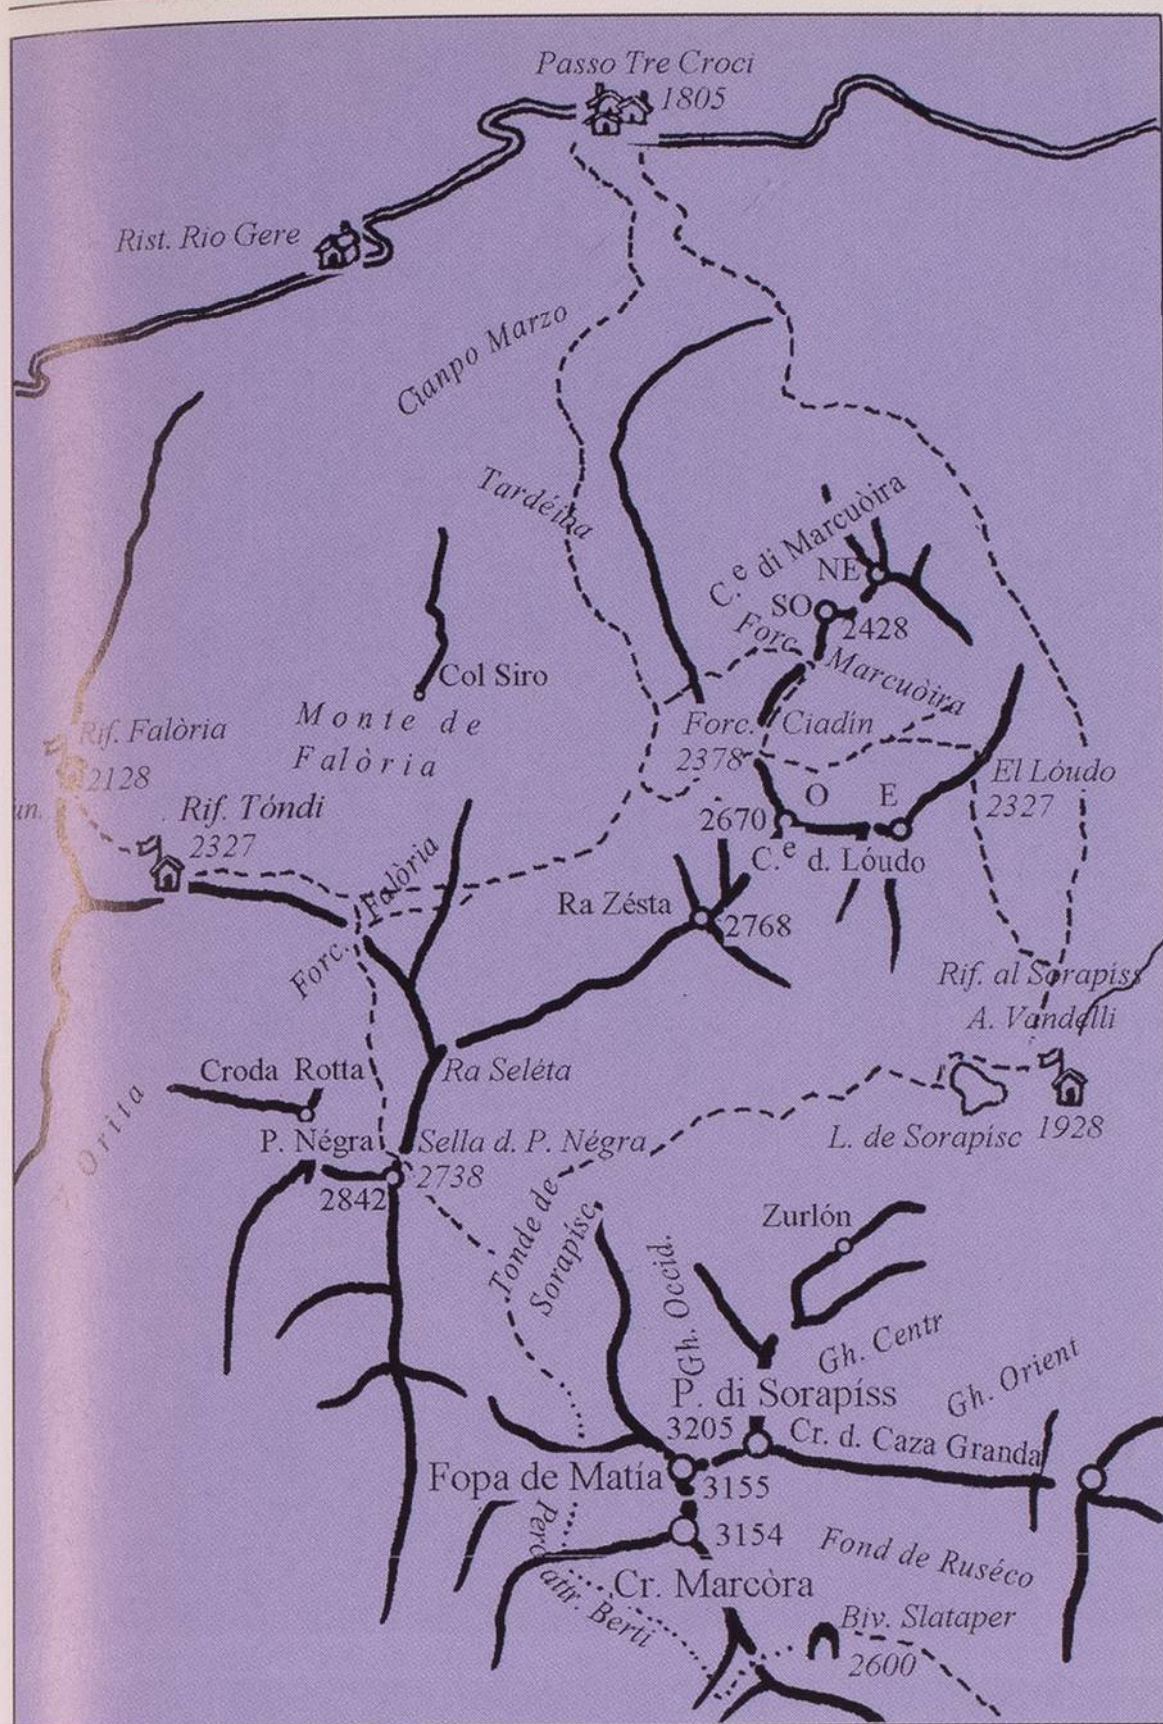 Passo Tre Croci
1805
Rist. Rio Gere
Cianpo Marzo
Tardéiba
C.e di Marcuòira
NE
SO
2428
Forc. Marcuòira
Col Siro
Monte de
Falòria
Forc. Ciadín
2378
Rif. Falòria
2128
un.
Rif. Tóndi
2327
El Lóudo
2327
O E
2670
C.e d. Lóudo
Forc. Falòria
Ra Zésta
2768
Rif. al Sorapíss
A. Vandelli
Croda Rotta
Ra Seléta
1928
L. de Sorapísc
P. Négra
Sella d. P. Négra
2738
2842
Orita
Tonde de
Sorapísc
Zurlón
Gh. Occid.
Gh. Centr
Gh. Orient
P. di Sorapíss
3205
Cr. d. Caza Granda
Fopa de Matía
3155
3154
Perc. attr. Berti
Fond de Ruséco
Cr. Marcòra
Biv. Slataper
2600